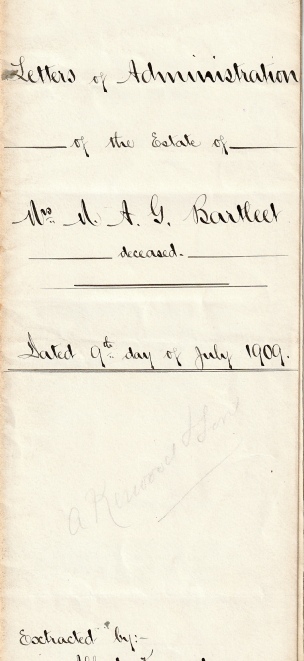 Letters of Administration
of the Estate of
Mrs. M. A. G. Bartleet
deceased.
Dated 9th day of July 1909.
A Kerwood & Sons
Extracted by:-